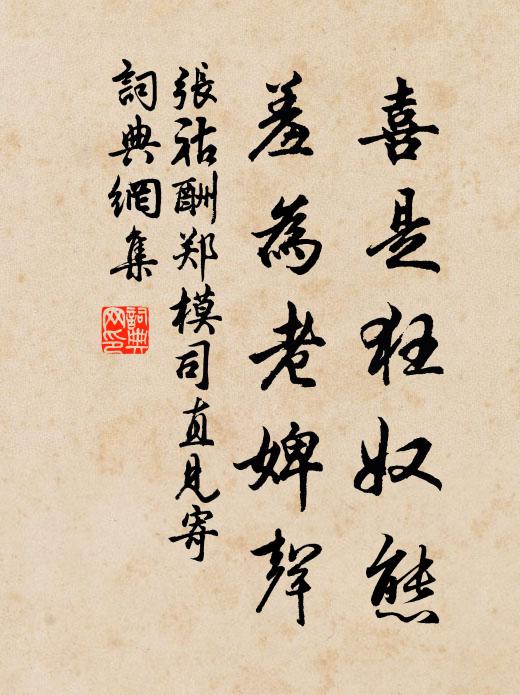 喜是狂奴態
羞為老婢聲
張祜酬郑模司直見寄
詞典網集
詞典网印